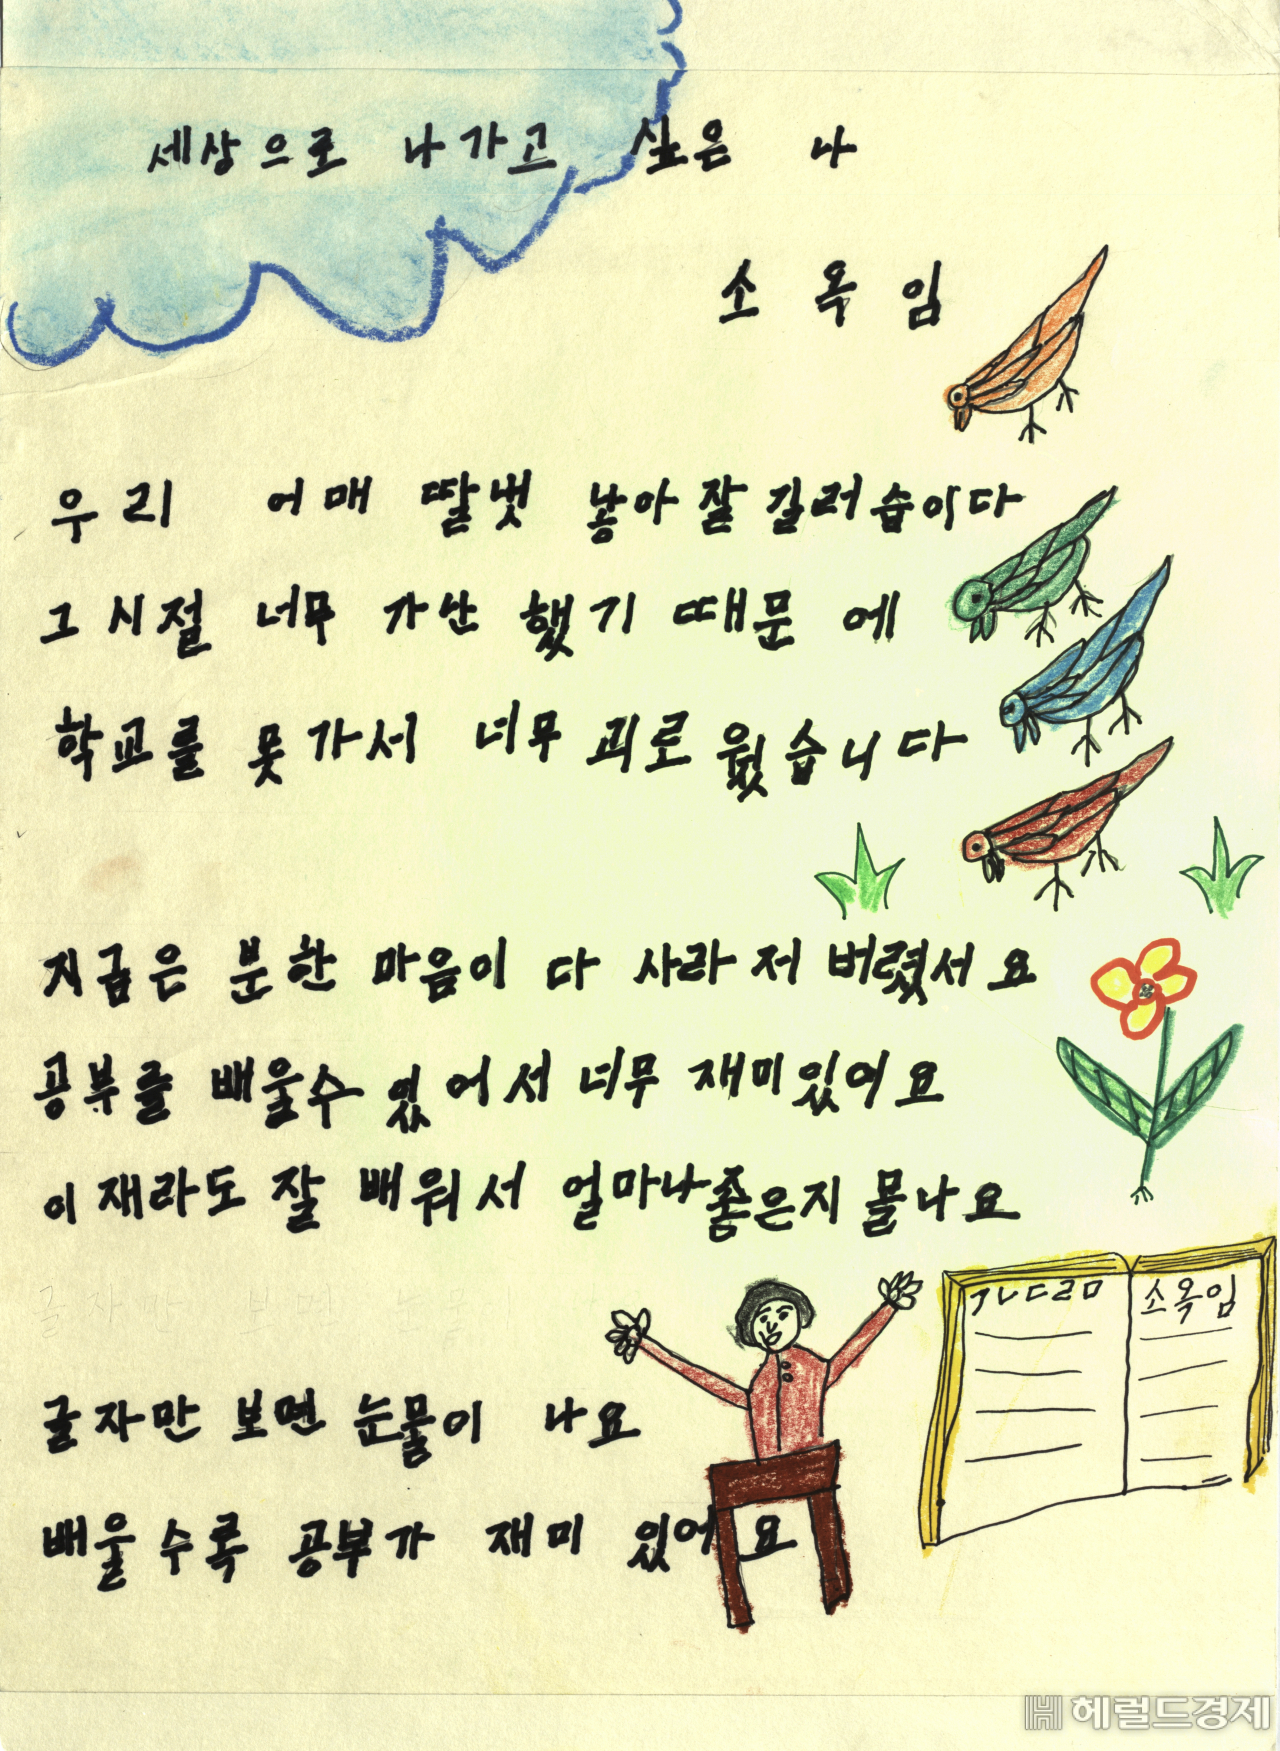 세상으로 나가고 싶은 나
소옥임
우리 어매 딸넷 놓아 잘 길러습이다
그 시절 너무 가난 했기 때문에
학교를 못가서 너무 괴로웠습니다
지금은 분한 마음이 다 사라저 버렸서요
공부를 배울수 있어서 너무 재미있어요
이재라도 잘 배워서 얼마나 좋은지 몰나요
글자만 보면 눈물이 나요
배울수록 공부가 재미 있어요
ㄱㄴㄷㄹㅁ 소옥임
헤럴드경제